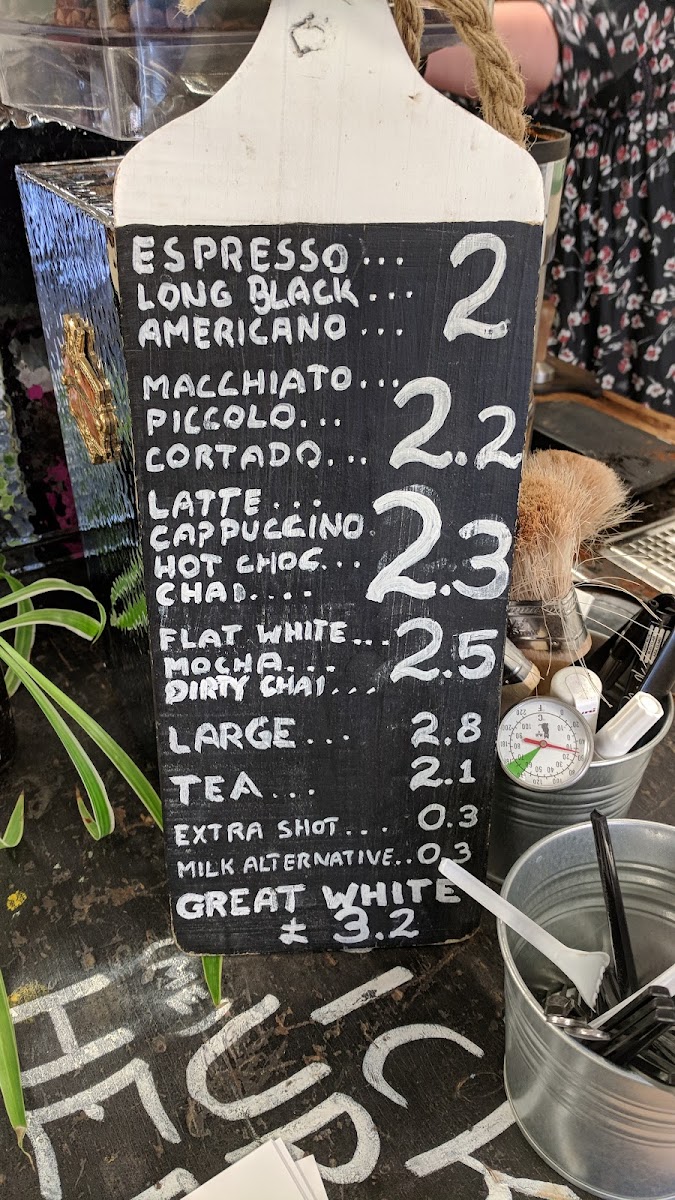 ESPRESSO... 2
LONG BLACK...
AMERICANO...
MACCHIATO... 2.2
PICCOLO...
CORTADO...
LATTE... 2.3
CAPPUCCINO
HOT CHOC...
CHAI....
FLAT WHITE... 2.5
MOCHA...
DIRTY CHAI...
LARGE... 2.8
TEA... 2.1
EXTRA SHOT... 0.3
MILK ALTERNATIVE.. 0.3
GREAT WHITE
± 3.2